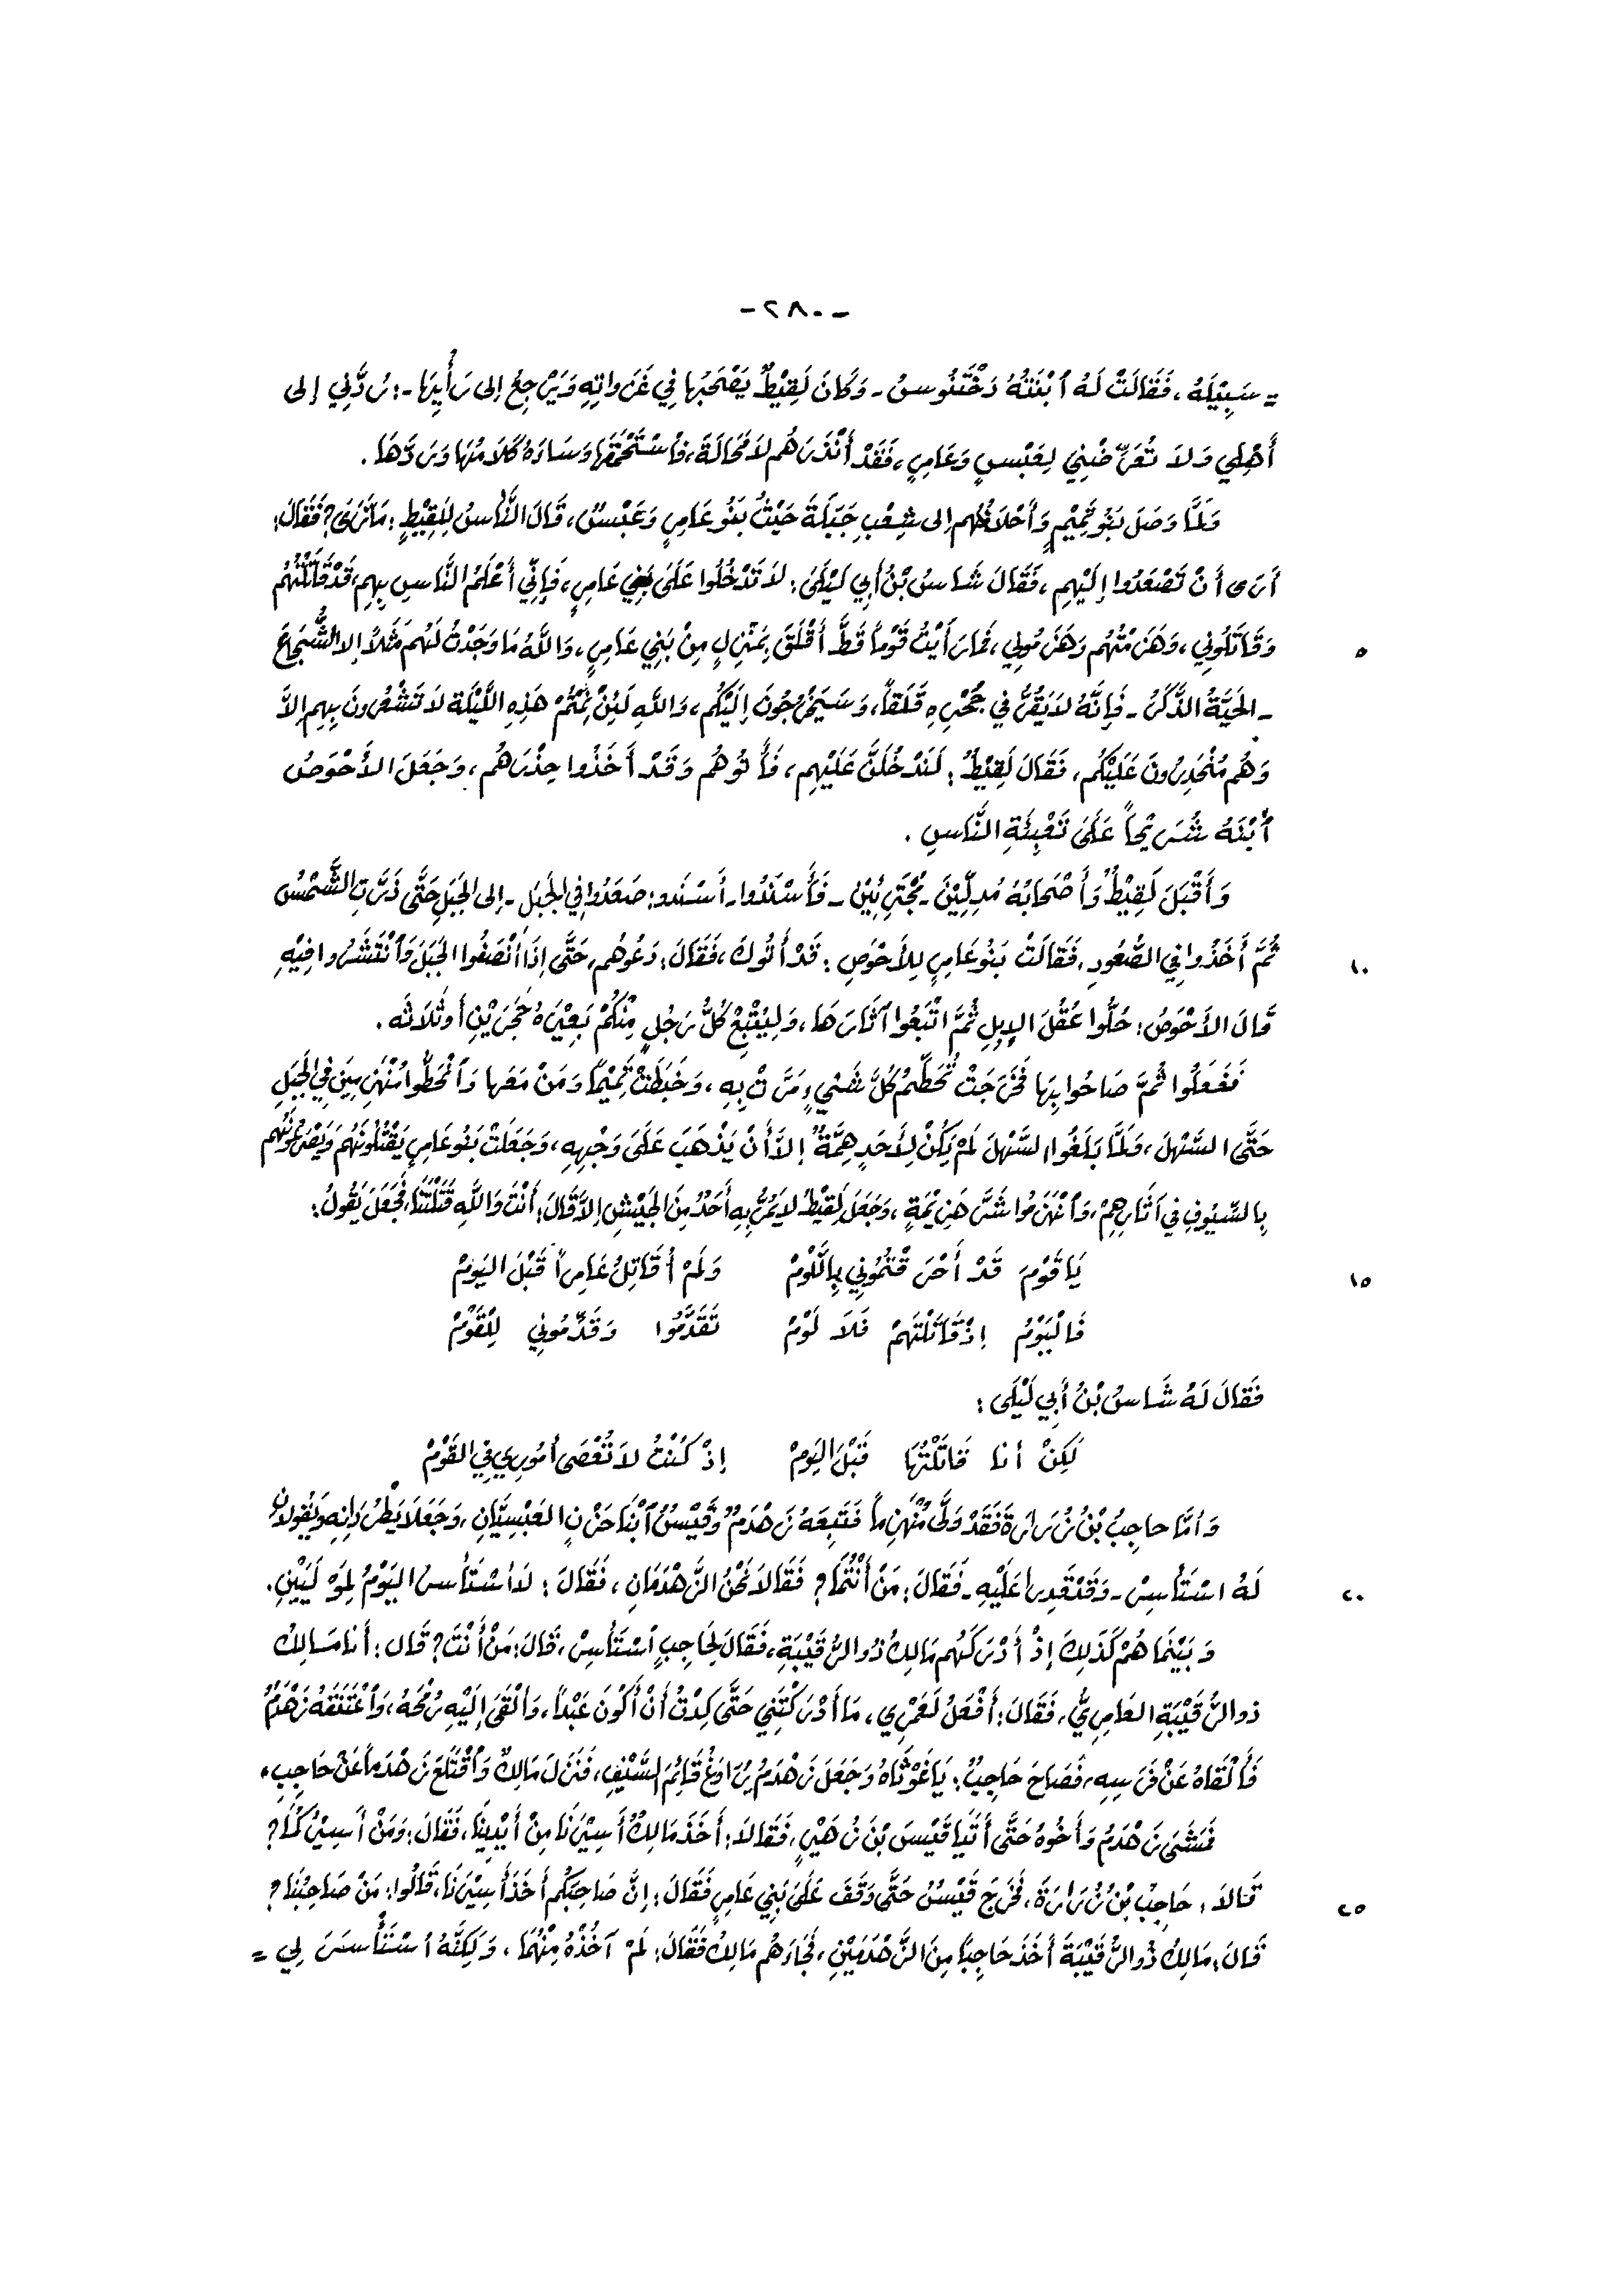 -٢٨٠-
= سَبِيْلَهُ ، فَقَالَتْ لَهُ ٱبْنَتُهُ دَخْتَنُوسُ - وَكَانَ لَقِيْطٌ يَصْحَبُهَا فِي غَزَواتِهِ وَيَرْجِعُ إلى رَأْيِهَا - : رُدَّنِي إلى
أَهْلِي وَلاَ تُعَرِّضْنِي لِعَبْسٍ وَعَامِرٍ ، فَقَدْ أَنْذَرَهُم لاَ مَحَالَةَ ، فٱسْتَحْمَقَهَا وَسَاءَهُ كَلاَمُهَا وَرَدَّهَا .
وَلَمَّا وَصَلَ بَنُو تَمِيْمٍ وَأَحْلاَفُهُم إلى شِعْبِ جَبَلَةَ حَيْثُ بَنُو عَامِرٍ وَعَبْسٌ ، قَالَ النَّاسُ لِلَقِيْطٍ : مَا تَرَى ؟ فَقَالَ :
أرَى أنْ تَصْعَدُوا إلَيْهِم ، فَقَالَ شَاسُ بْنُ أبِي لَيْلَى : لاَ تَدْخُلُوا عَلَى بَنِي عَامِرٍ ، فَإنِّي أعْلَمُ النَّاسِ بِهِم ، قَدْ قَاتَلْتُهُم
٥ وَقَاتَلُونِي ، وَهَزَمْتُهُم وَهَزَمُونِي ، فَمَا رَأيْتُ قَوْماً قَطُّ أقْلَقَ بِمَنْزِلٍ مِنْ بَنِي عَامِرٍ ، وَاللَّهُ مَا وَجَدْتُ لَهُم مَثَلاً إلا الشُّجَاعَ
- الحَيَّةُ الذَّكَرُ - فَإنَّهُ لاَيَقِرُّ فِي جُحْرِهِ قَلَقاً ، وَسَيَخْرُجُونَ إلَيْكُم ، وَاللَّهِ لَئِنْ نِمْتُمْ هَذِهِ اللَّيْلَةَ لاَ تَشْعُرُونَ بِهِم إلاَّ
وَهُم مُنْحَدِرُونَ عَلَيْكُم ، فَقَالَ لَقِيْطٌ : لَنَدْخُلَنَّ عَلَيْهِم ، فَأتُوهُم وَقَدْ أَخَذُوا حِذْرَهُم ، وَجَعَلَ الأَحْوَصُ
ٱبْنَهُ شُرَيْحاً عَلَى تَعْبِئَةِ النَّاسِ .
وَأَقْبَلَ لَقِيْطٌ وَأصْحَابُهُ مُدِلِّيْنَ - مُجْتَرِئِيْنَ - فَأَسْنَدُوا - أَسْنَدوا : صَعَدُوا فِي الجَبَلِ - إلى الجَبَلِ حَتَّى ذَرَّتِ الشَّمْسُ
١٠ ثُمَّ أَخَذُوا فِي الصُّعُودِ ، فَقَالَتْ بَنُو عَامِرٍ لِلأَحْوَصِ : قَدْ أَتُوكَ ، فَقَالَ : دَعُوهُم ، حَتَّى إذَا أنْصَفُوا الجَبَلَ وَٱنْتَشَرُوا فِيْهِ
قَالَ الأَحْوَصُ : حُلُّوا عُقُلَ الإبِلِ ثُمَّ ٱتْبَعُوا آثَارَهَا ، وَلِيُتْبِعْ كُلُّ رَجُلٍ مِنْكُمْ بَعِيْرَهُ حَجَرَيْنِ أو ثَلاَثَه .
فَفَعَلُوا ثُمَّ صَاحُوا بِهَا فَخَرَجَتْ تُحَطِّمُ كُلَّ شَيْءٍ مَرَّتْ بِهِ ، وَخَبَطَتْ تَمِيْماً وَمَنْ مَعَهَا وَٱنْحَطُّوا مُنْهَزِمِيْنَ فِي الجَبَلِ
حَتَّى السَّهْلَ ، وَلَمَّا بَلَغُوا السَّهْلَ لَمْ يَكُنْ لِأَحَدٍ هِمَّةٌ إلاَّ أنْ يَذْهَبَ عَلَى وَجْهِهِ ، وَجَعَلَتْ بَنُو عَامِرٍ يَقْتُلُونَهُم وَيَصْرَعُونَهُم
بِالسِّيُوفِ فِي آثَارِهِمْ ، وَٱنْهَزَمُوا شَرَّ هَزِيْمَةٍ ، وَجَعَلَ لَقِيْطٌ لاَيَمُرُّ بِهِ أَحَدٌ مِنَ الجَيْشِ إلاَّ قَالَ : أنْتَ وَاللَّهِ قَتَلْتَنَا ، فَجَعَلَ يَقُولُ :
١٥ يَا قَوْمِ قَدْ أَحْرَقْتُمُونِي بِاللَّوْمْ وَلَمْ أُقَاتِلْ عَامِراً قَبْلَ اليَومْ
فَالْيَوْمُ إذْ قَاتَلْتَهُمْ فَلاَ لَوْمْ تَقَدَّمُوا وَقَدِّمُونِي لِلْقَوْمْ
فَقَالَ لَهُ شَاسُ بْنُ أبِي لَيْلَى :
لَكِنْ أنا قَاتَلْتُهَا قَبْلَ اليَومْ إذْ كُنْتُ لاَ تُعْصَى أُمُورِي فِي القَوْمْ
وَأمَّا حاجِبُ بْنُ زُرَارَةَ فَقَدْ وَلَّى مُنْهَزِماً فَتَبِعَهُ زَهْدَمٌ وَقَيْسٌ ٱبْنَا حَزْنٍ العَبْسِيَّانِ ، وَجَعَلاَ يَطْرُدَانِهِ وَيَقُولاَنِ
٢٠ لَهُ ٱسْتَأسِرْ - وَقَدْ قَدِرا عَلَيْهِ - فَقَالَ : مَنْ أَنْتُمَا ؟ فَقَالاَ نَحْنُ الزَّهْدَمَانِ ، فَقَالَ : لاَ أسْتَأسرُ اليَوْمُ لِمَوْلَيَيْنِ .
وَبَيْنَمَا هُمْ كَذَلِكَ إذْ أَدْرَكَهُم مَالِكُ ذُو الرُّقَيْبَةِ ، فَقَالَ لِحَاجِبٍ ٱسْتَأسِرْ ، قَالَ : مَنْ أَنْتَ ؟ قَال : أنا مَالِكُ
ذو الرُّقَيْبَةِ العَامِرِيُّ ، فَقَالَ : أَفْعَلُ لَعَمْرِي ، مَا أدْرَكْتَنِي حَتَّى كِدْتُ أنْ أَكُونَ عَبْداً ، وَألْقَى إلَيْهِ رُمْحَهُ ، وَٱعْتَنَقَهُ زَهْدَمٌ
فَألْقَاهُ عَنْ فَرَسِهِ ، فَصَاحَ حَاجِبٌ : يَا غَوْثَاهُ وَجَعَلَ زَهْدَمٌ يُرَاوِغُ قَائِمَ السَّيْفِ ، فَنَزَلَ مَالِكٌ وَٱقْتَلَعَ زَهْدَماً عَنْ حَاجِبٍ ،
فَمَشَى زَهْدَمٌ وَأَخُوهُ حَتَّى أَتَيَا قَيْسَ بْنَ زُهَيْرٍ ، فَقَالاَ : أَخَذَ مَالِكٌ أَسِيْرَنَا مِنْ أَيْدِينَا ، فَقَالَ : وَمَنْ أَسِيْرُكُمَا ؟
٢٥ قَالاَ : حَاجِبُ بْنُ زُرَارَةَ ، فَخَرَجَ قَيْسُ حَتَّى وَقَفَ عَلَى بَنِي عَامِرٍ فَقَالَ : إنَّ صَاحِبَكُم أَخَذَ أسِيْرَنَا ، قَالُوا : مَنْ صَاحِبُنَا ؟
قَالَ : مَالِكُ ذُو الرُّقَيْبَةَ أَخَذَ حَاجِباً مِنَ الزَّهْدَمَيْنِ ، فَجَاءَهُم مَالِكُ فَقَالَ : لَمْ آخُذْهُ مِنْهُمَا ، وَلَكِنَّهُ ٱسْتَأْسَرَ لِي =